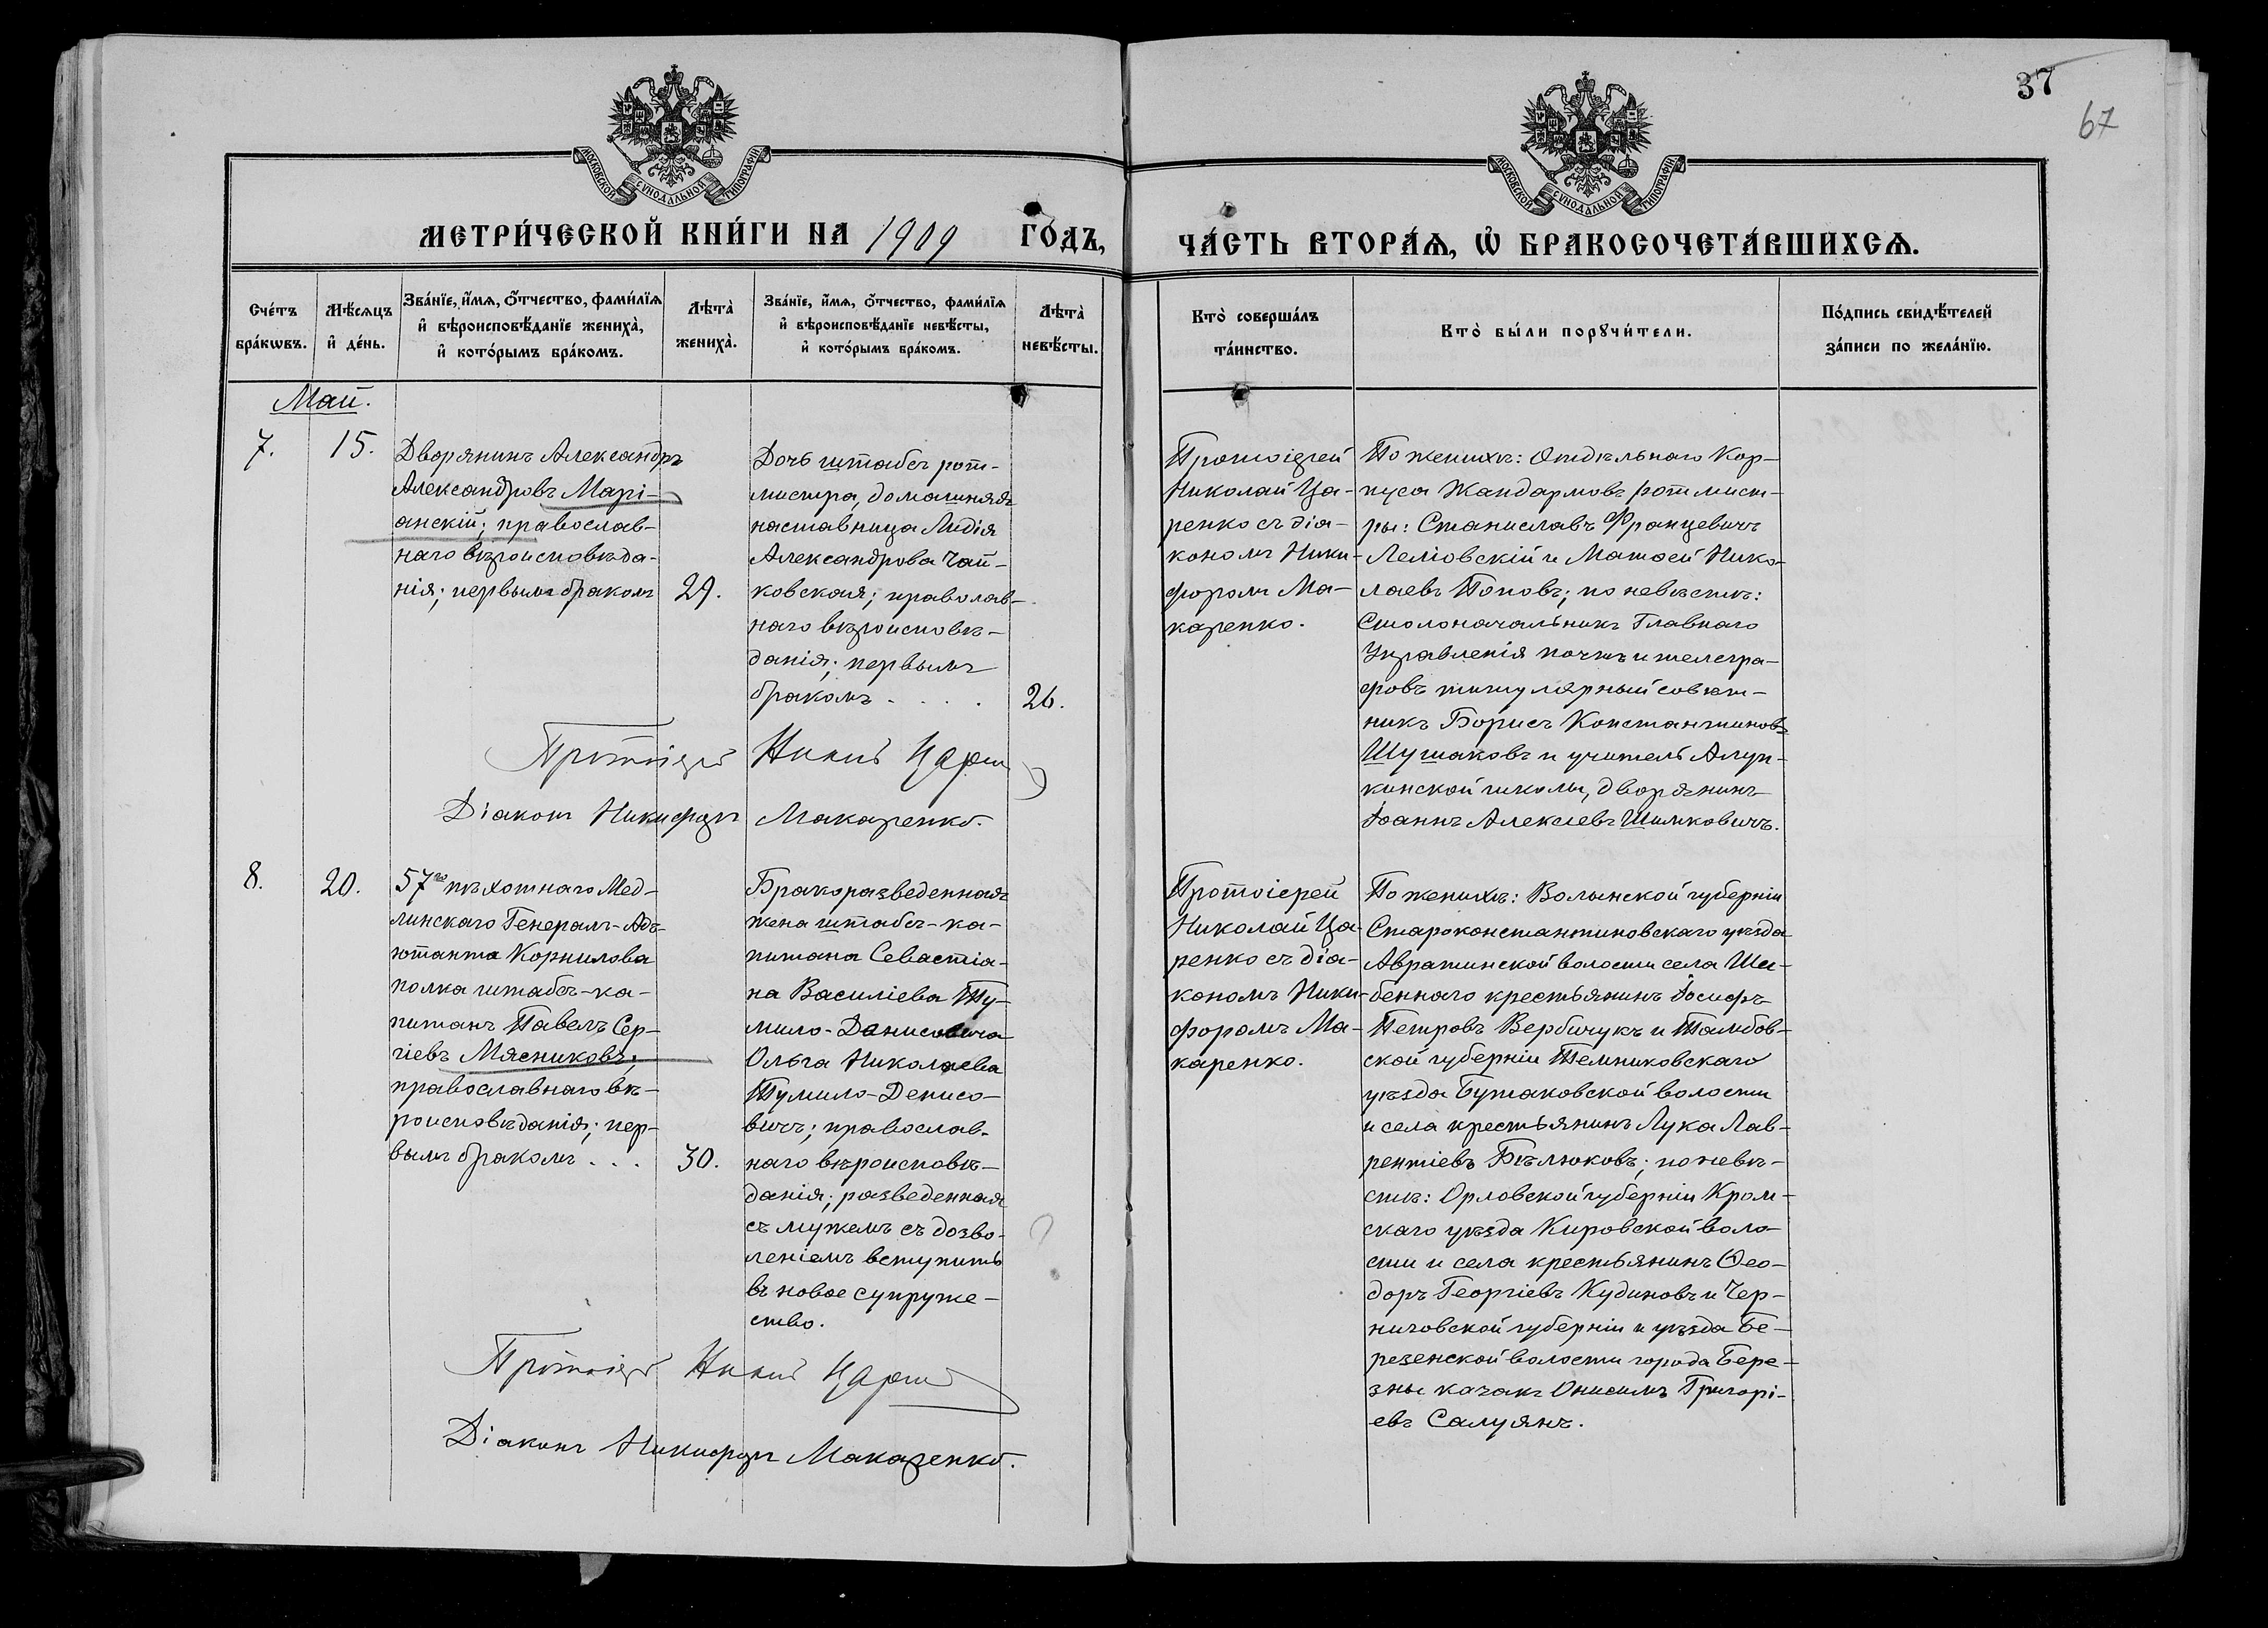 37
67
МОСКОВСКОЙ СѴНОДАЛЬНОЙ ТИПОГРАФІИ
МОСКОВСКОЙ СѴНОДАЛЬНОЙ ТИПОГРАФІИ
МЕТРИ́ЧЕСКОЙ КНИ́ГИ НА 1909 ГО́ДЪ,
ЧА́СТЬ ВТОРА́Ѧ, Ѡ҆ БРАКОСОЧЕТА́ВШИХСѦ.
Сче́тъ
бра́кѡвъ.
Мѣ́сѧцъ
и҆ де́нь.
Зва́нїе, и҆́мѧ, ѻ҆́тчество, фами́лїѧ
и҆ вѣроисповѣ́данїе жениха̀,
и҆ кото́рымъ бра́комъ.
Лѣта̀
жениха̀.
Зва́нїе, и҆́мѧ, ѻ҆́тчество, фами́лїѧ
и҆ вѣроисповѣ́данїе невѣ́сты,
и҆ кото́рымъ бра́комъ.
Лѣта̀
невѣ́сты.
Кто̀ соверша́лъ
та́инство.
Кто̀ бы́ли порꙋчи́тели.
По́дпись свидѣ́телей
за́писи по жела́нїю.
Май.
7.
15.
Дворянинъ Александръ
Александровъ Марі-
анскій; православ-
наго вѣроисповѣда-
нія; первымъ бракомъ
29.
Дочь штабсъ рот-
мистра, домашняя
наставница Лидія
Александрова Чай-
ковская; праволав-
наго вѣроисповѣ-
данія; первымъ
бракомъ . . . .
26.
Протоіерей
Николай Ца-
ренко съ діа-
кономъ Ники-
форомъ Ма-
каренко.
По женихѣ: Отдѣльнаго Кор-
пуса Жандармовъ ротмист-
ры: Станиславъ Францевичъ
Леліовскій и Матѳей Нико-
лаевъ Поповъ; по невѣстѣ:
Столоначальникъ Главнаго
Управленія почтъ и телегра-
фовъ титулярный совѣт-
никъ Борисъ Константиновъ
Шушаковъ и учитель Алуп-
кинской школы, дворянинъ
Іоаннъ Алексѣевъ Шимковичъ.
Протоіерей Никол Царен
Діаконъ Никифоръ Макаренко.
8.
20.
57го пѣхотнаго Мод-
линскаго Генералъ-Адъ-
ютанта Корнилова
полка штабсъ-ка-
питанъ Павелъ Сер-
гіевъ Мясниковъ;
православнаго вѣ-
роисповѣданія; пер-
вымъ бракомъ . . .
30.
Бракоразведенная
жена штабсъ-ка-
питана Севастіа-
на Василіева Ту-
мило-Данисовича
Ольга Николаева
Тумило-Денисо-
вичъ; православ-
наго вѣроисповѣ-
данія; разведенная
съ мужемъ съ дозво-
леніемъ вступить
въ новое супруже-
ство.
Протоіерей
Николай Ца-
ренко съ діа-
кономъ Ники-
форомъ Ма-
каренко.
По женихѣ: Волынской губерніи
Староконстантиновскаго уѣзда
Авратинской волости села Ше-
беннаго крестьянинъ Іосифъ
Петровъ Вербичукъ и Тамбов-
ской губерніи Темниковскаго
уѣзда Бутаковской волости
и села крестьянинъ Лука Лав-
рентіевъ Бѣлюковъ; по невѣ-
стѣ: Орловской губерніи Кром-
скаго уѣзда Кировской воло-
сти и села крестьянинъ Ѳео-
доръ Георгіевъ Кудиновъ и Чер-
ниговской губерніи и уѣзда Бе-
резенской волости города Бере-
зны казакъ Онисимъ Григорі-
евъ Салуянъ.
Протоіерей Никол Царен
Діаконъ Никифоръ Макаренко.